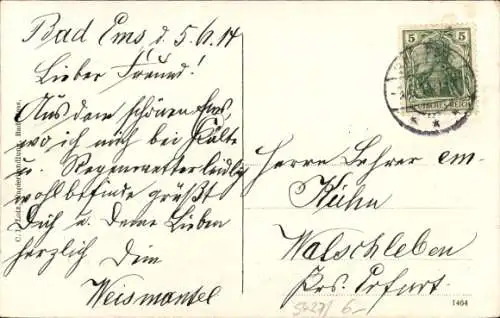 Bad Ems d. 5.6.14
Lieber Freund!
Aus dem schönen Ems,
wo ich mich bei Kälte
u. Regenwetter leidlig
wohlbefinde grüßt
Dich u. Deine Lieben
herzlich Dein
Weismantel
Herrn Lehrer em.
Kühn
Walschleben
Krs. Erfurt.
5 5
DEUTSCHES REICH
1464
5427/ 6-